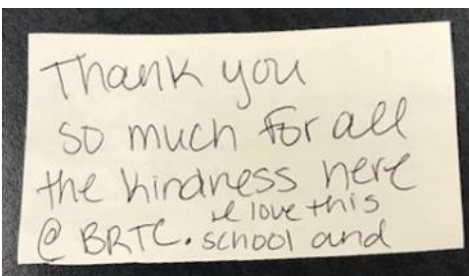 Thank you
so much for all
the kindness here
@ BRTC. I love this
school and